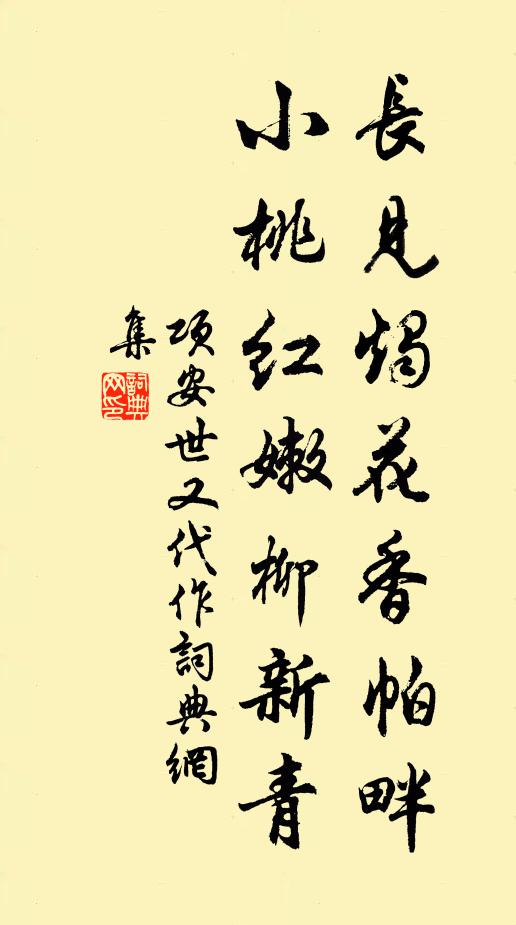 長見燭花香帕畔
小桃紅嫩柳新青
項安世又代作詞典網
集
詞典
网印